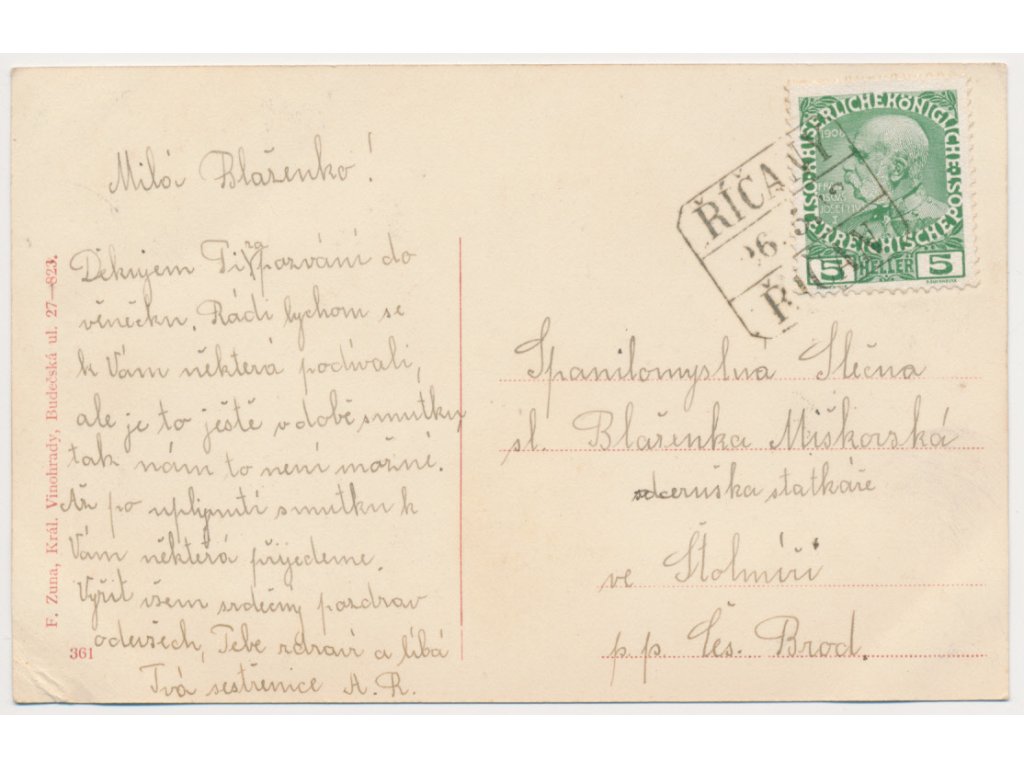 Milá Blaženko!
Děkujem Ti za pozvání do
věnečku. Rádi bychom se
k Vám některá podívali,
ale je to ještě v době smutku,
tak nám to není možné.
Až po uplynutí smutku k
Vám některá přijedeme.
Vyřiť všem srdečný pozdrav
ode všech, Tebe zdraví a líbá
Tvá sestřenice A. R.
F. Zuna, Král. Vinohrady, Budečská ul. 27—823.
361
ŘÍČANY
26. 5.
KAISERLICHE KÖNIGLICHE
ÖSTERREICHISCHE POST
1908
5 HELLER 5
Spanilomyslná Slečna
sl. Blaženka Miškovská
dceruška statkáře
ve Štolmíři
p. p. Čes. Brod.